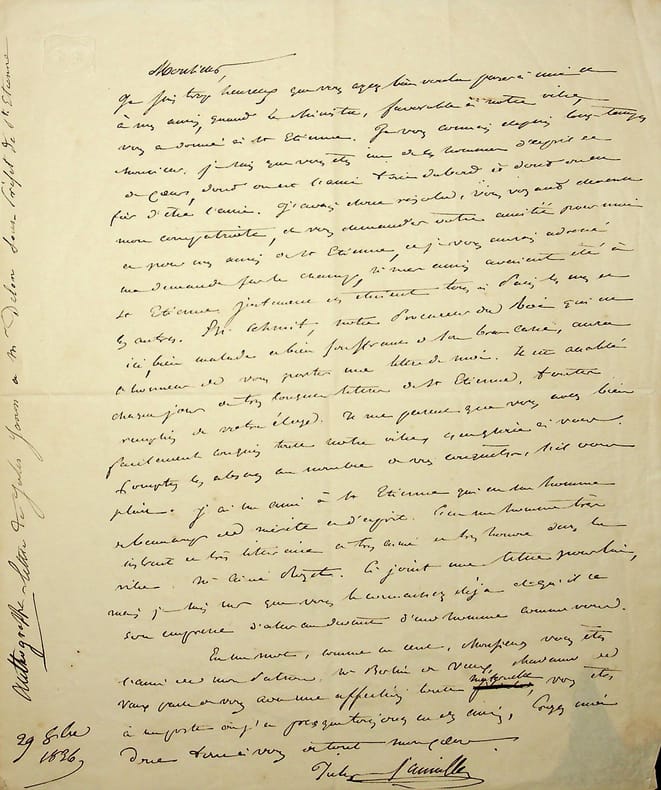 Monsieur,
Je suis trop heureux que vous ayez bien voulu penser à moi et
à mes amis, quand le Ministre, favorable à notre ville,
vous a donné à St Etienne. Je vous connais depuis long-temps
Monsieur. je sais que vous êtes un de ces hommes d'esprit et
de cœur, dont on est l'ami et dont on est
fier d'être l'ami. J'avais donc résolu, vous voyant devenu
mon compatriote, de vous demander votre amitié pour moi
et pour mes amis de St Etienne, et je vous aurais adressé
ma demande sur le champ, si mes amis avaient été à
St Etienne, justement ils étaient tous à Paris les uns et
les autres. Mr Schmit, notre Procureur du Roi qui
ici, bien malade et bien souffrant, aura
l'honneur de vous porter une lettre de moi. Je suis accablé
chaque jour de très longues lettres de St Etienne, toutes
remplies de votre éloge. Il me parait que vous avez bien
facilement conquis toute notre ville,
Comptez les absens au nombre de vos conquêtes, s'il vous
plait. J'ai un ami à St Etienne qui est un homme
et beaucoup de mérite et d'esprit. C'est un homme très
et très littéraire et très aimé et très honoré dans la
ville. Mr Aimé Royet. Ci joint une lettre pour lui,
mais je suis sûr que vous le connaissez déjà et qu'il se
sera empressé d'aller au devant d'un homme comme vous.
En un mot, comme en cent, Monsieur vous êtes
l'ami de mon Patron, Mr Bertin de Vaux, Madame de
Vaux parle de vous avec une affection toute maternelle vous êtes
à un poste où j'ai presque toujours eu des amis, soyez moi
donc et à vous de tout mon cœur.
Jules Janin
29 8bre
1836
Autographe - Lettre de Jules Janin à Mr Delon Sous Préfet de St Etienne